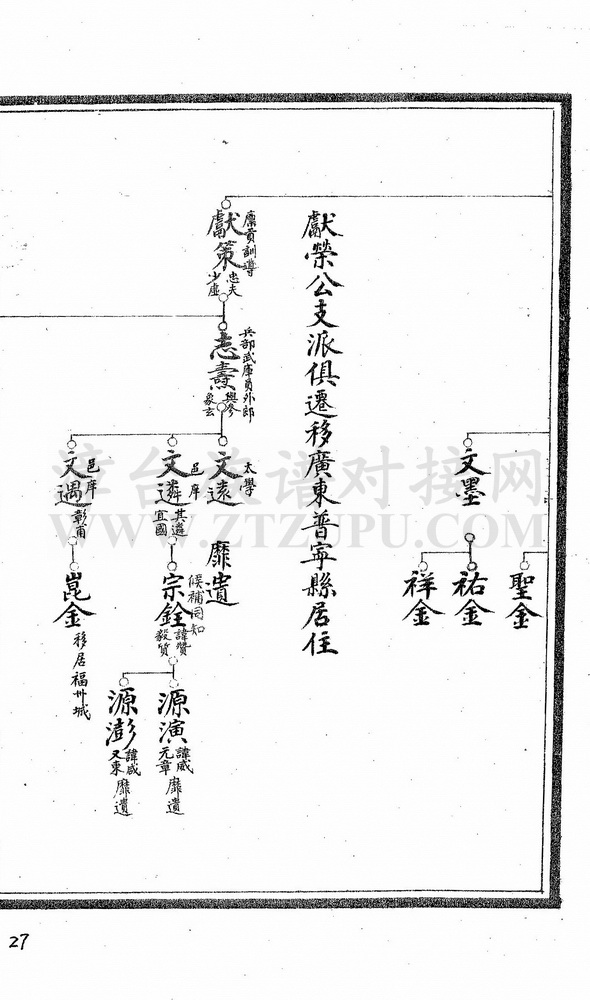 聖金
文墨
祐金
祥金
獻榮公支派俱遷移廣東普寧縣居住
廩貢訓導
獻策
忠夫
少虛
兵部武庫員外郎
志燾
與參
象玄
太學
文遠
靡遺
邑庠
文遴
其遴
宜國
候補同知
宗銓
諱贊
毅質
源演
諱威
元章
靡遺
源澎
諱威
又東
靡遺
邑庠
文遇
彰甫
崑金
移居福州城
草台族谱对接网
WWW.ZTZUPU.COM
27